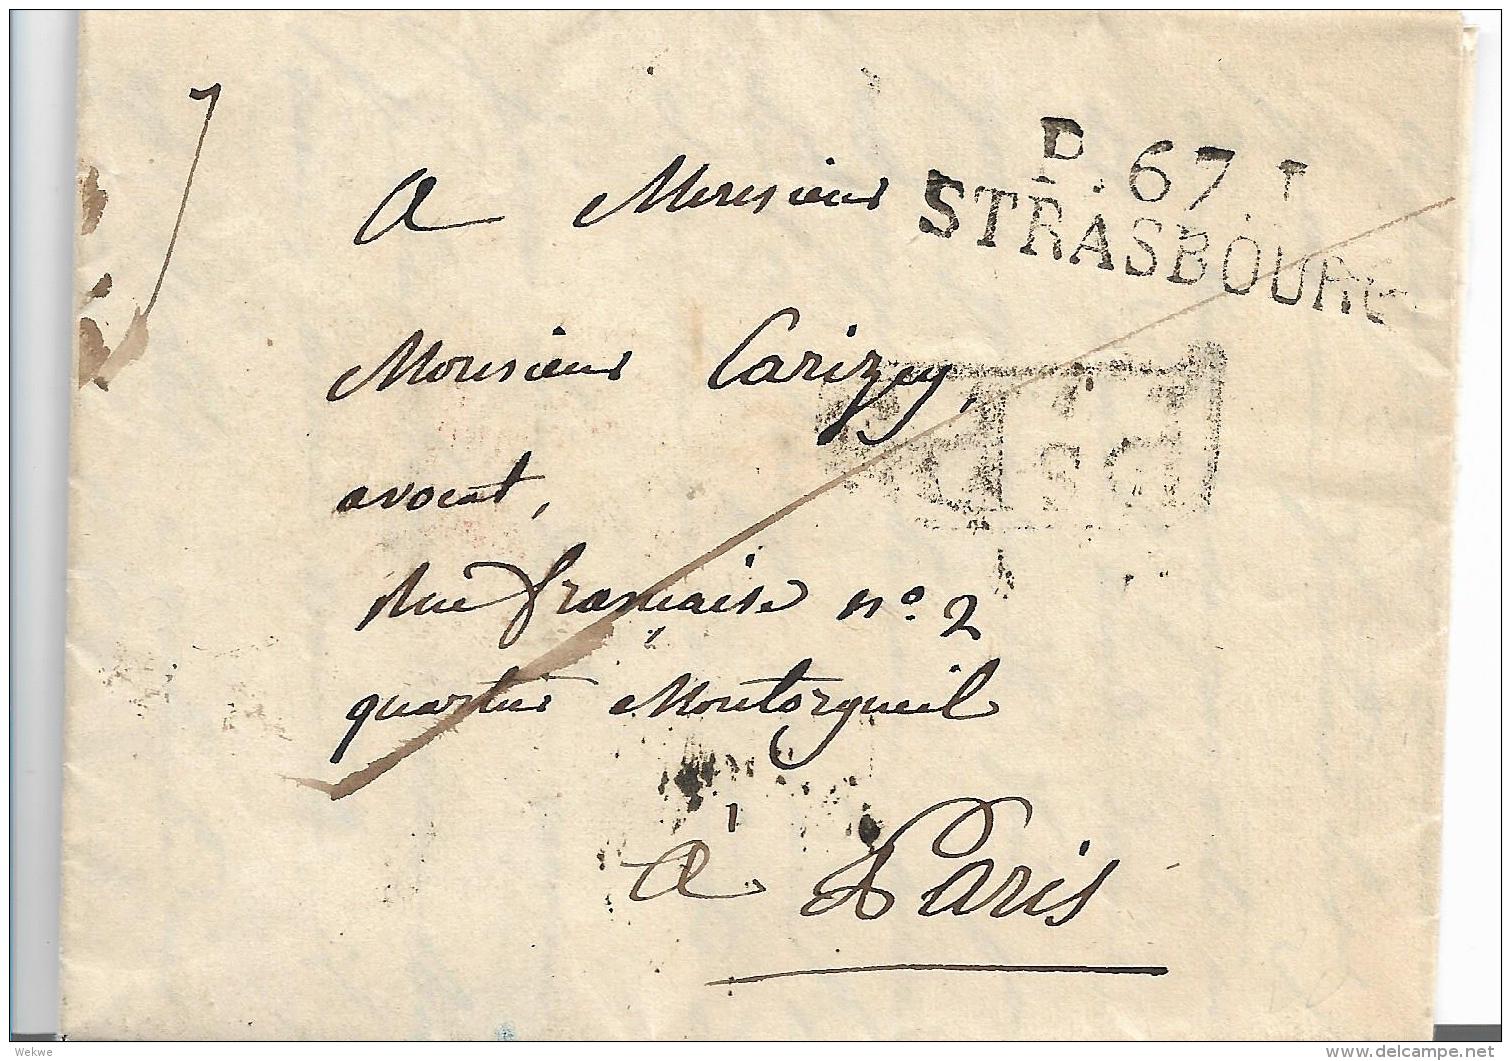 P. 67. P
STRASBOURG
A Monsieur
Monsieur Carizey,
avocat,
Rue française n° 2
quartier Montorgueil
à Paris
P.P.P.P.
Wekwe
delcampe.net